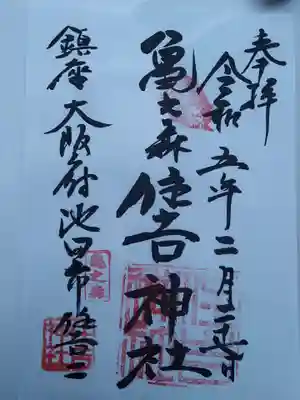 奉拝
令和五年二月日
亀之森住吉神社
鎮座 大阪府池田市住吉二
亀之森